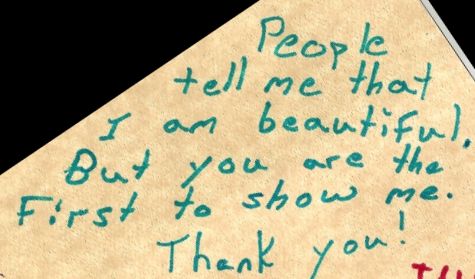 People
tell me that
I am beautiful.
But you are the
First to show me.
Thank you!